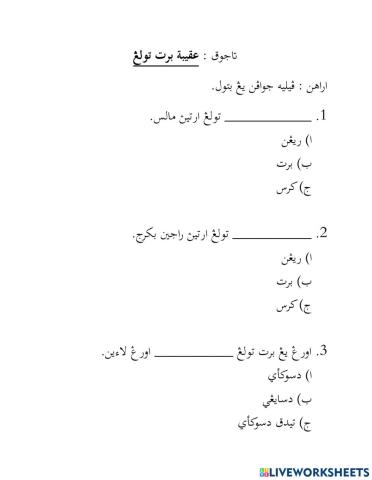 تاجوق : عقيبة برت تولڠ
اراهن : ڤيليه جواڤن يڠ بتول.
1. ____________ تولڠ ارتين مالس.
ا) ريڠن
ب) برت
ج) كرس
2. ___________ تولڠ ارتين راجين بكرج.
ا) ريڠن
ب) برت
ج) كرس
3. اورڠ يڠ برت تولڠ ___________ اورڠ لاءين.
ا) دسوكأي
ب) دسايڠي
ج) تيدق دسوكأي
LIVEWORKSHEETS